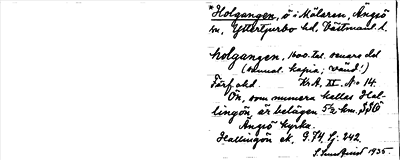 *Holgangen, ö i Mälaren, Ängsö
sn, Yttertjurbo hd, Västmanl. l.
holgangen, 1600-tal. senare del
(samt. kopia; vänd!)
Färf akt. Kr A. XI. No 14.
Ön, som numera kallas Hal-
lingön, är belägen 5½ km. SSO
Ängsö kyrka.
Hallingön ek. 9.74 Lj. 242.
1935.